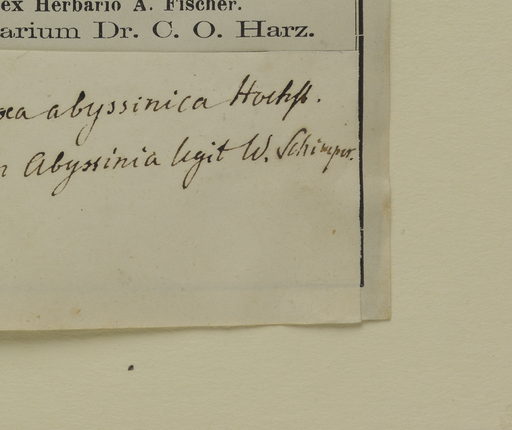 ex Herbario A. Fischer.
arium Dr. C. O. Harz.
abyssinica Hochst.
Abyssinia legit W. Schimper.